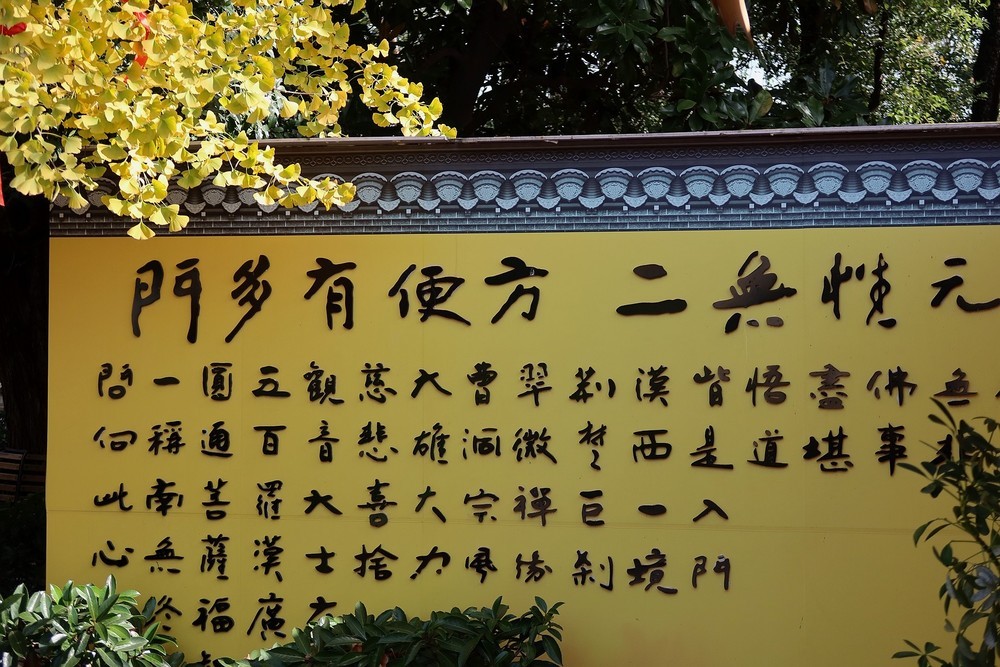 元性無二 方便有多門
無
佛事
盡堪
悟道
皆是入門
漢西一境
荊楚巨剎
翠微禪
曹洞宗風
大雄大力
慈悲喜捨
觀音大士
五百羅漢廣
圓通菩薩福
一稱南無終
問何此心